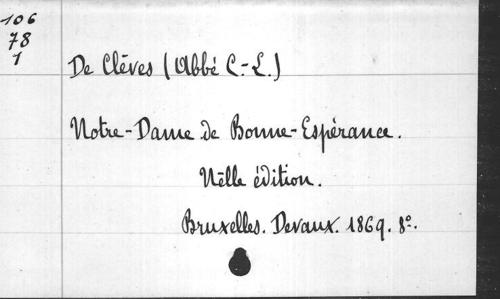 106
78
1
De Clèves (Abbé C.-L.)
Notre-Dame de Bonne-Espérance.
Nelle édition.
Bruxelles. Devaux. 1869. 8°.